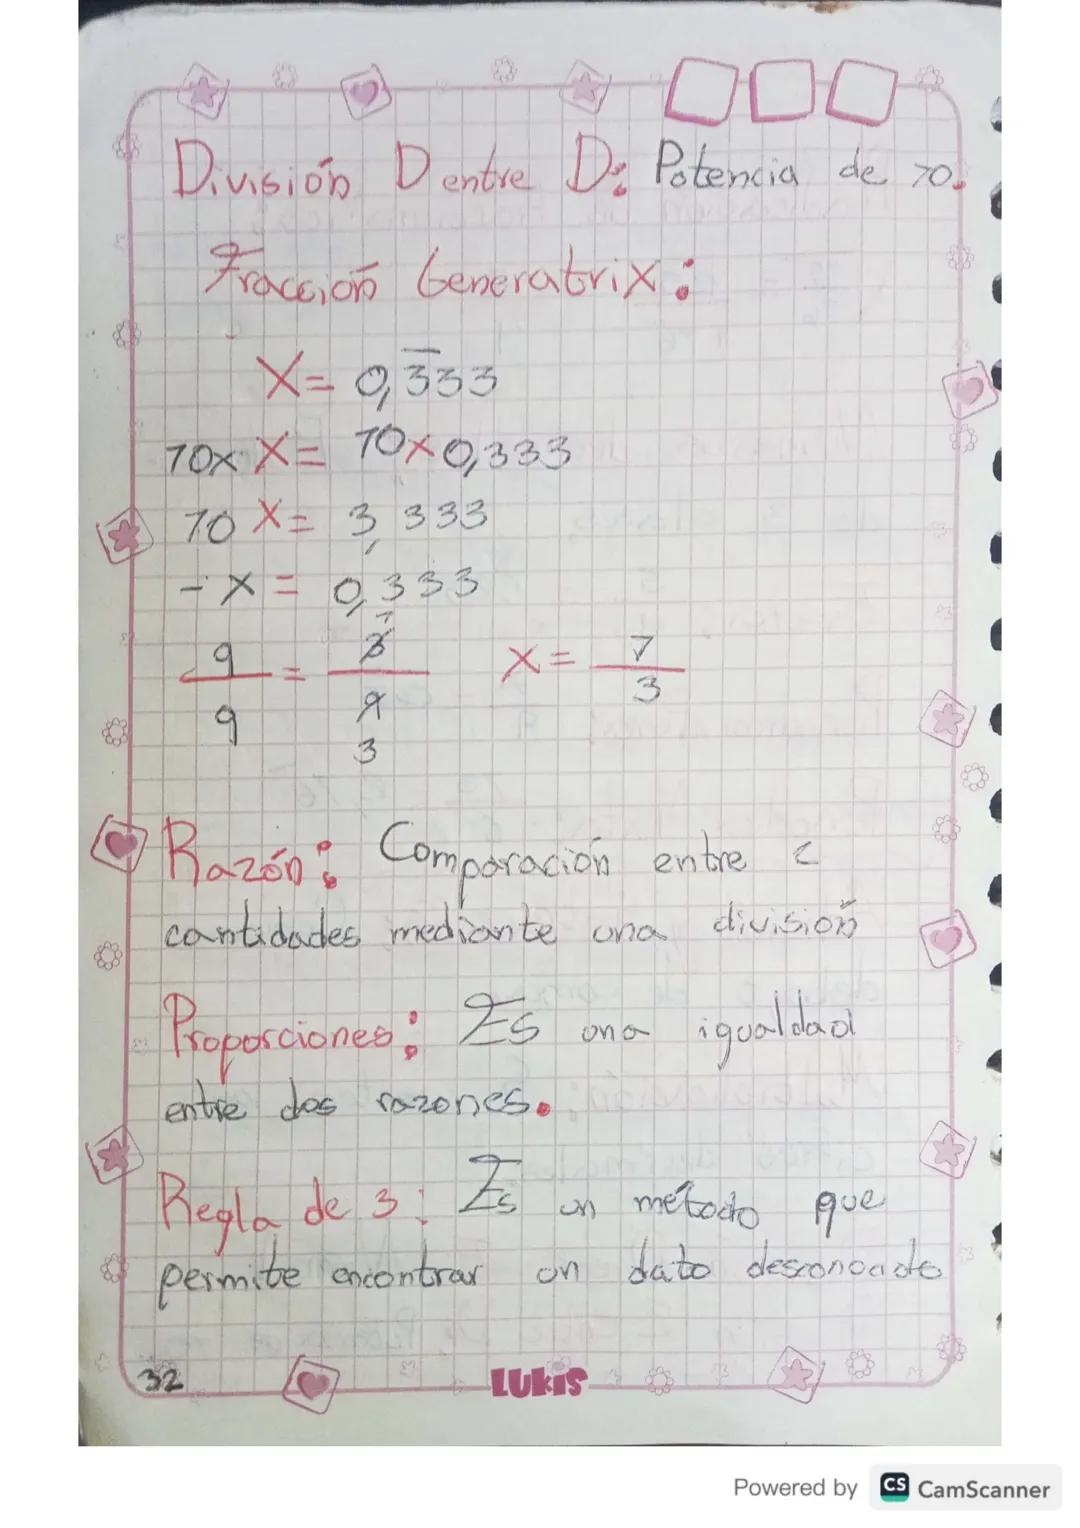 División D entre D: Potencia de 10.
Fracción Generatrix:
X= 0,3̅33
10x X= 10x0,333
10 X= 3,333
- X = 0,333
9/9 = 3/9 1 3 X= 1/3
Razón: Comparación entre 2
cantidades mediante una división
Proporciones: Es una igualdad
entre dos razones.
Regla de 3: Es un método que
permite encontrar un dato desconocido
32
LUKIS
Powered by CS CamScanner